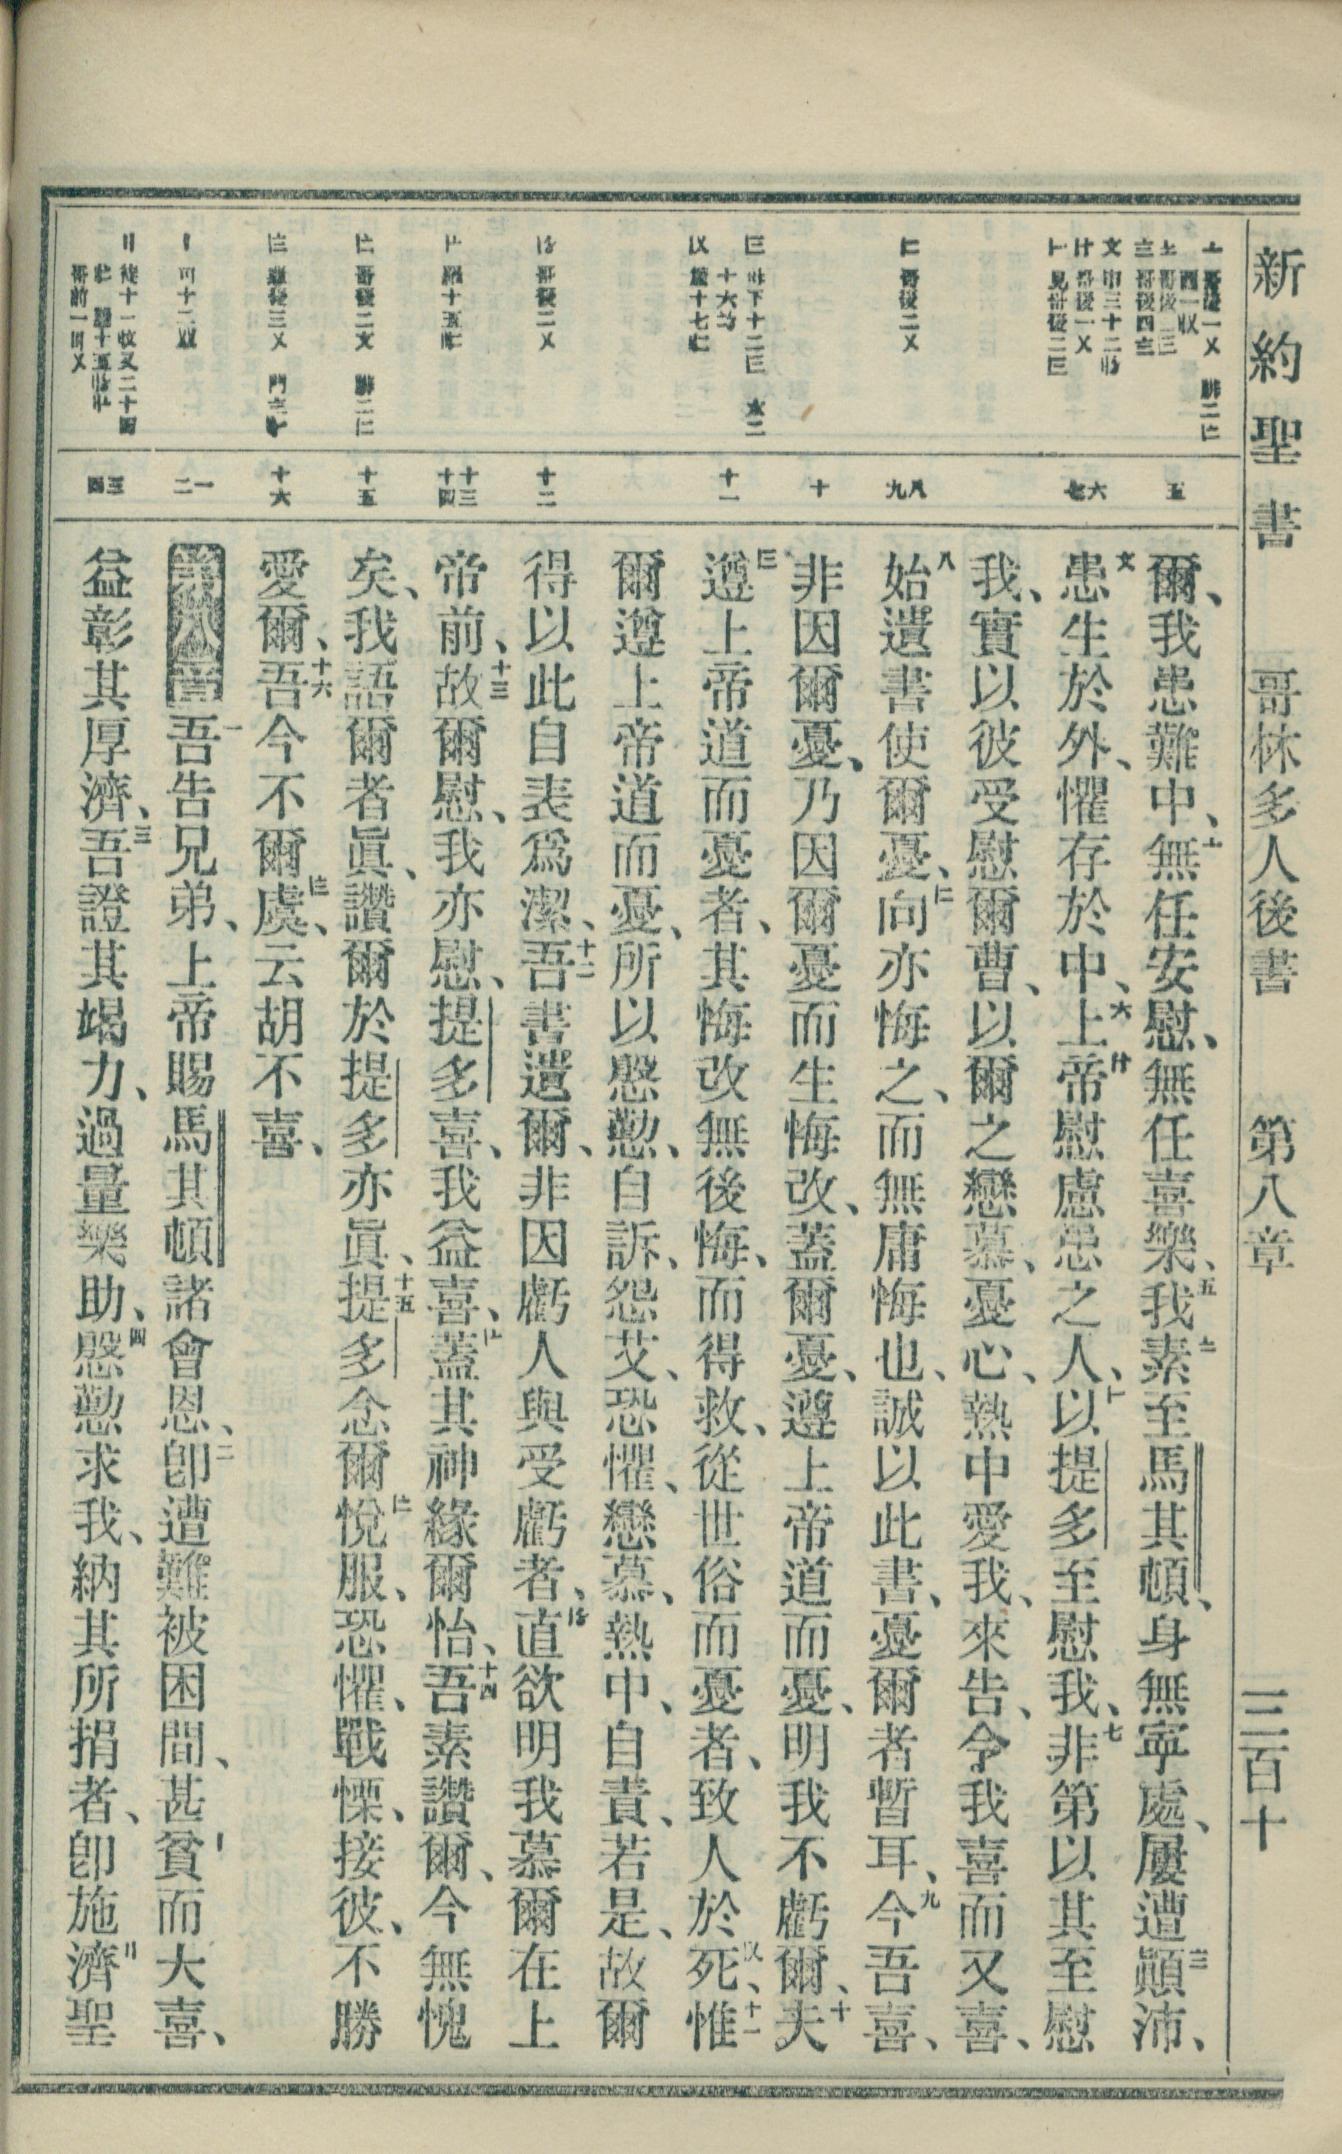 新約聖書 哥林多人後書 第八章 三百十
五
六七
八九
十
十一
十二
十三十四
十五
十六
一二
三四
爾、我患難中、無任安慰、無任喜樂、五我素至馬其頓、身無寧處、屢遭顚沛、
患生於外、懼存於中、六上帝慰慮患之人、以提多至慰我、七非第以其至慰
我、實以彼受慰爾曹、以爾之戀慕、憂心、熱中愛我、來告、令我喜而又喜、
八始遺書使爾憂、向亦悔之、而無庸悔也、誠以此書、憂爾者暫耳、九今吾喜、
非因爾憂、乃因爾憂而生悔改、蓋爾憂、遵上帝道而憂、明我不虧爾、十夫
遵上帝道而憂者、其悔改無後悔、而得救、從世俗而憂者、致人於死、十一惟
爾遵上帝道而憂、所以慇懃、自訴、怨艾、恐懼、戀慕、熱中、自責、若是、故爾
得以此自表爲潔、十二吾書遺爾、非因虧人與受虧者、直欲明我慕爾在上
帝前、十三故爾慰、我亦慰、提多喜、我益喜、蓋其神緣爾怡、十四吾素讚爾、今無愧
矣、我語爾者眞、讚爾於提多亦眞、十五提多念爾悅服、恐懼、戰慄、接彼、不勝
愛爾、十六吾今不爾虞、云胡不喜、
第八章 一吾告兄弟、上帝賜馬其頓諸會恩、二卽遭難被困間、甚貧而大喜、
益彰其厚濟、三吾證其竭力、過量樂助、四慇懃求我、納其所捐者、卽施濟聖